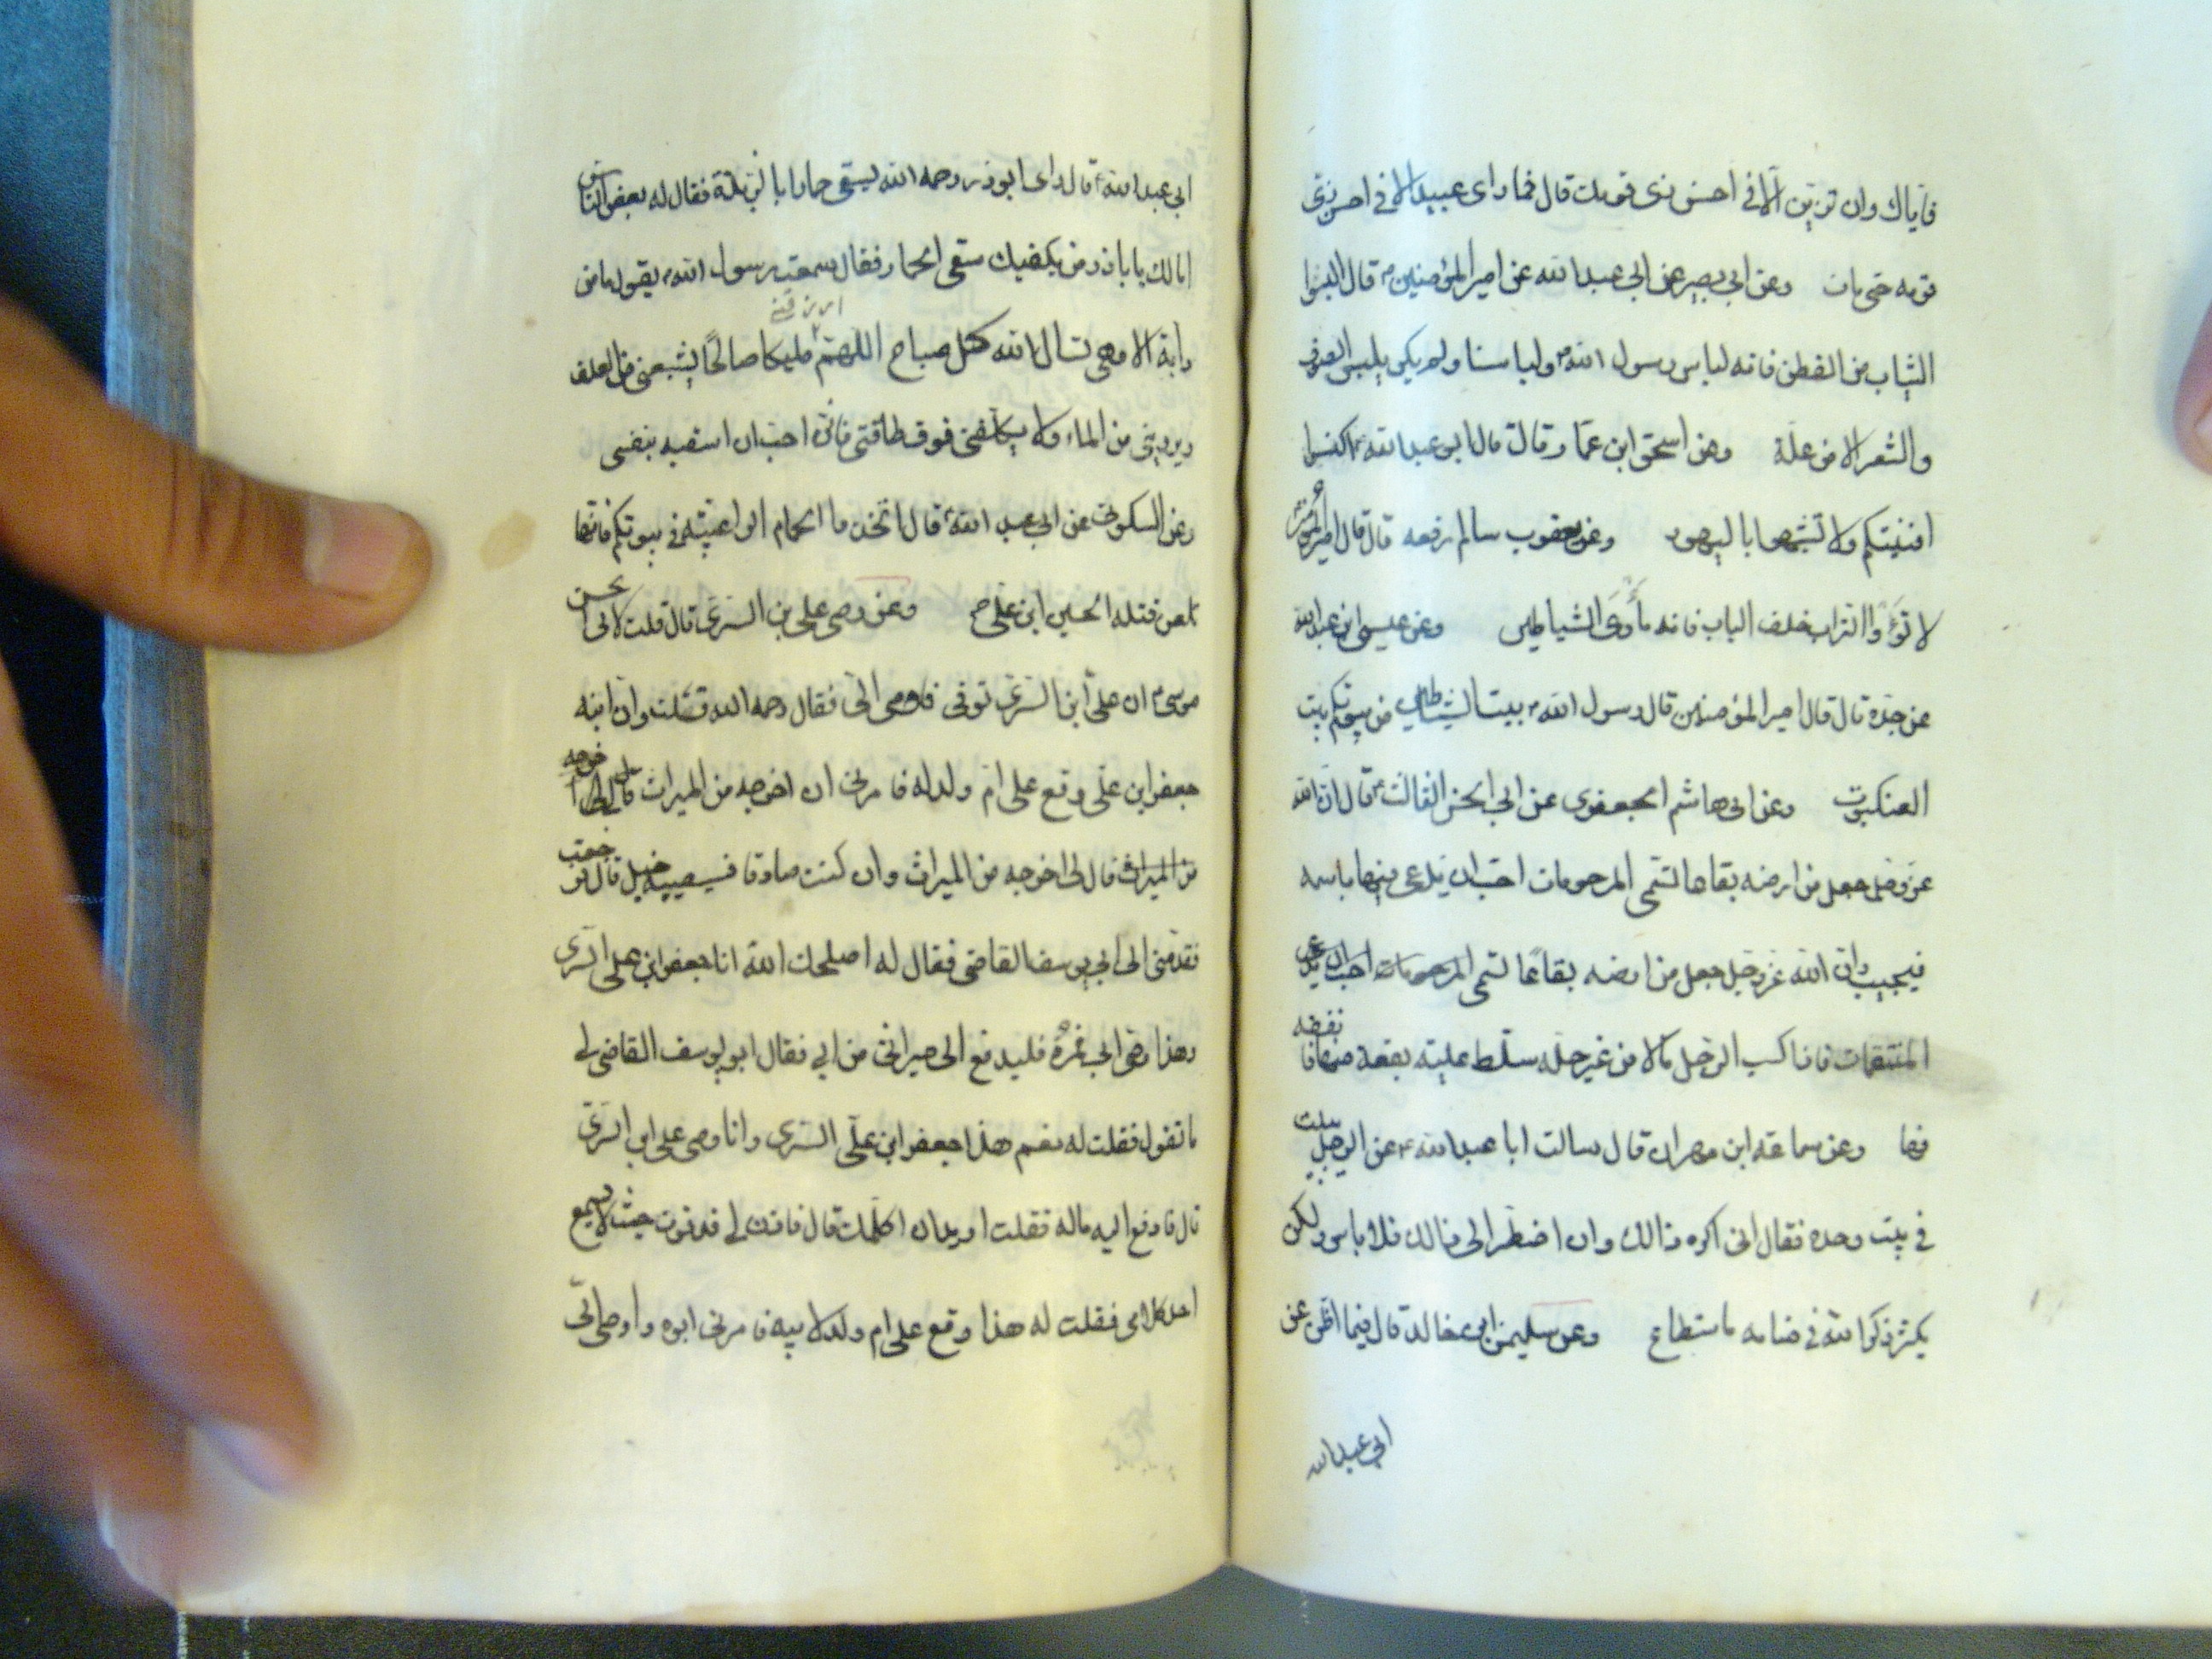 فاياك وان تزين الا في احسن زي قومك قال فما راى عبيد الا في احسن زي
قومه حتى مات وعن ابى بصير عن ابى عبد الله عن امير المؤمنين ع قال البسوا
الثياب من القطن فانه لباس رسول الله ص ولباسنا ولم يكن يلبس الصوف
والشعر الا من علة وعن اسحق ابن عمار قال قال ابو عبد الله ع اكنسوا
افنيتكم ولا تشبهوا باليهود وعن يعقوب سالم رفعه قال قال امير المؤمنين
لا تؤوا التراب خلف الباب فانه مأوى الشياطين وعن عيسى ابن عبد الله
عن جده قال قال امير المؤمنين قال رسول الله ص بيت الشياطين من بيوتكم بيت
العنكبوت وعن ابى هاشم الجعفرى عن ابى الحسن الثالث ع قال ان الله
عز وجل جعل من ارضه بقاعا تسمى المرحومات احب ان يدعى فيها باسمه
فيجيب وان الله عز وجل جعل من ارضه بقاعا تسمى المرحومات احب ان يدعى
المنتقمات فاذا كسب الرجل مالا من غير حله سلط عليه بقعة منها فانفقه
فيها وعن سماعة ابن مهران قال سالت ابا عبد الله ع عن الرجل يبيت
في بيت وحده فقال انى اكره ذالك وان اضطر الى ذالك فلا باس ولكن
يكثر ذكر الله في منامه ما استطاع وعن سليمن ابن خالد قال فيما اظن عن
ابي عبد الله
ابي عبد الله ع قال راى ابو ذر رحمه الله يسقى حمارا بالربذة فقال له بعض الناس
اما لك يا با ذر من يكفيك سقى الحمار فقال سمعت رسول الله ص يقول ما من
دابة الا وهى تسال الله كل صباح اللهم مليكا صالحا يشبعنى من العلف
ارزقني
ويروينى من الماء ولا يكلفنى فوق طاقتى فانى احب ان اسقيه بنفسى
وعن السكونى عن ابى عبد الله ع قال اتخذوا الحمام الراعبية في بيوتكم فانها
تلعن قتلة الحسين ابن على ع وعن وصى على بن السرى قال قلت لابى الحسن
موسى ع ان على ابن السرى توفى فاوصى الى فقال رحمه الله فقلت وان ابنه
جعفر ابن على وقع على ام ولد له فامرنى ان اخرجه من الميراث قال لى اخرجه
من الميراث قال لى اخرجه من الميراث وان كنت صادقا فسيصيبه خبل قال فرجعت
فقدمنى الى ابي يوسف القاضى فقال له اصلحك الله انا جعفر ابن على السرى
وهذا وصى ابى فمره فليدفع الى ميراثى من ابي فقال ابو يوسف القاضى لي
ما تقول فقلت له نعم هذا جعفر ابن على السرى وانا وصى على ابن السرى
قال فادفع اليه ماله فقلت اريد ان اكلمك قال فادن لي فدنوت حيث لا يسمع
احد كلامى فقلت له هذا وقع على ام ولد لابيه فامرنى ابوه واوصى الى